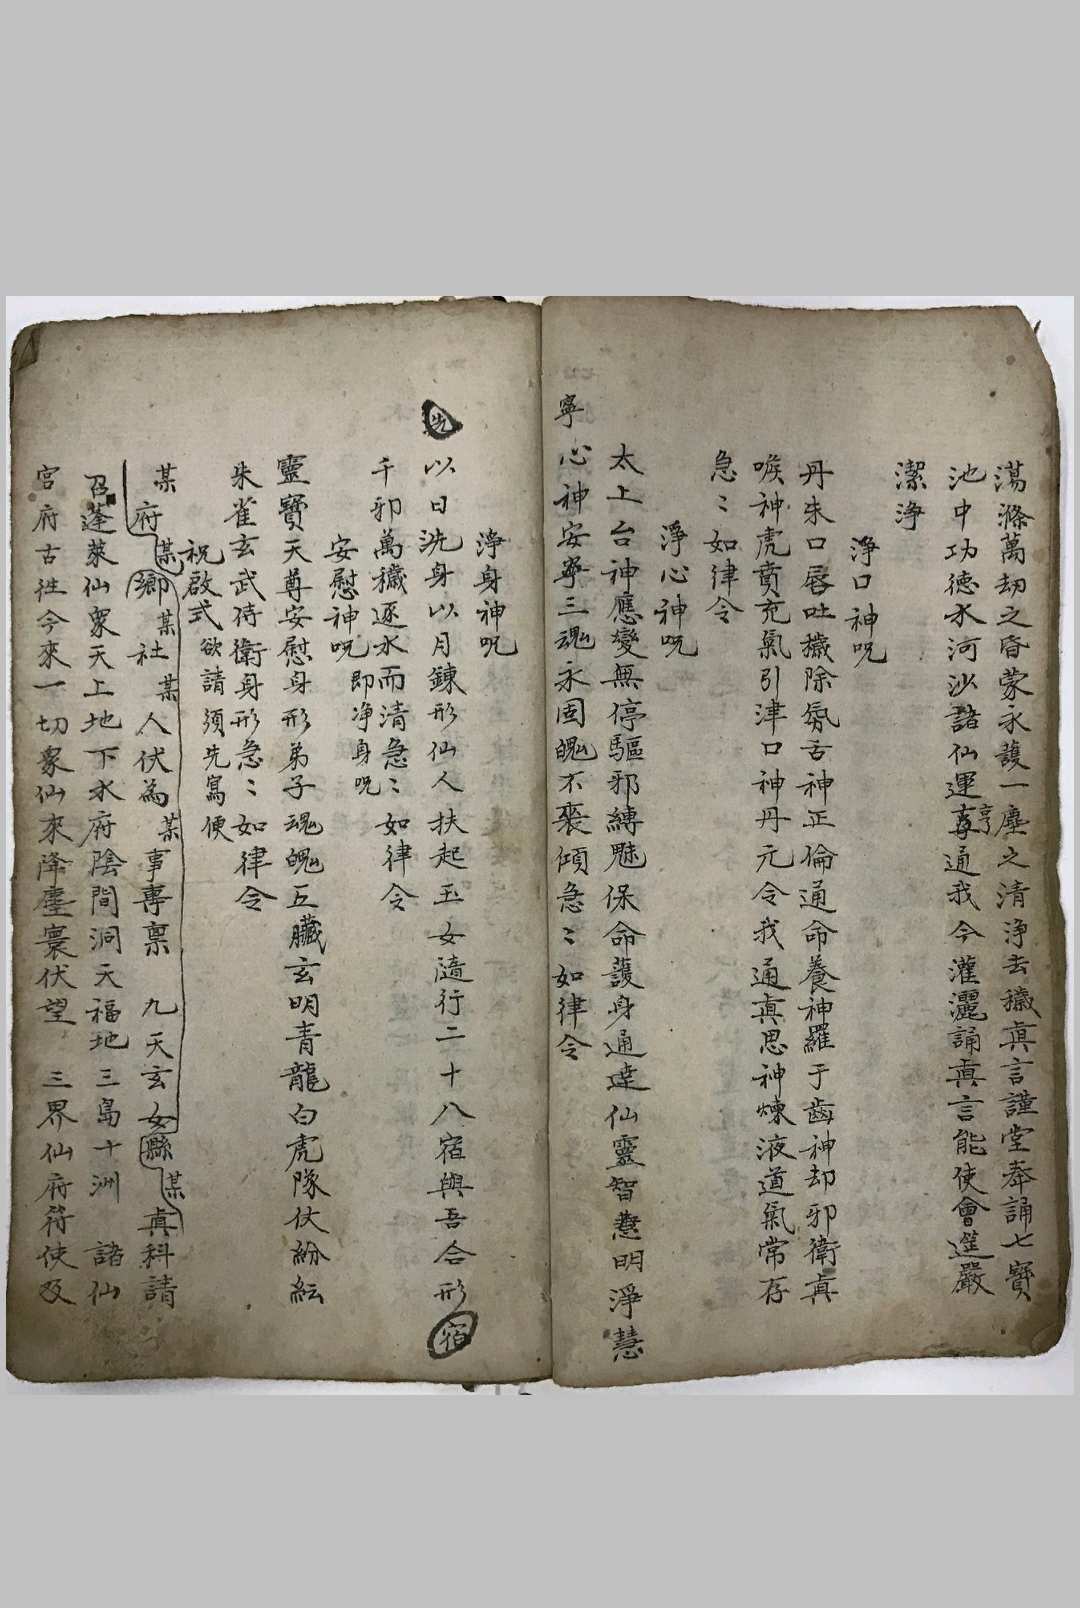 蕩滌萬劫之昏蒙永護一塵之清淨去穢真言謹堂奉誦七寶
池中功德水河沙諸仙運享亨通我今灌灑誦真言能使會筵嚴
潔浄
浄口神呪
丹朱口唇吐穢除氛舌神正倫通命養神羅于齒神却邪衛真
喉神虎賁充氣引津口神丹元令我通真思神煉液道氣常存
急〻如律令
淨心神呪
太上台神應變無停驅邪縛魅保命護身通達仙靈智慧明淨慧
寧心神安寧三魂永固魄不喪傾急〻如律令
淨身神呪
先以日洗身以月鍊形仙人扶起玉女隨行二十八宿與吾合形宿
千邪萬穢逐水而清急〻如律令
安慰神呪即净身呪
靈寶天尊安慰身形弟子魂魄五臟玄明青龍白虎隊仗紛紜
朱雀玄武侍衛身形急〻如律令
祝啟式欲請須先寫便
某府某鄉某社某人伏為某事專稟 九天玄女縣某真科請
召蓬萊仙衆天上地下水府陰間洞天福地三島十洲 諸仙
宮府古往今來一切衆仙來降塵寰伏望 三界仙府符使及